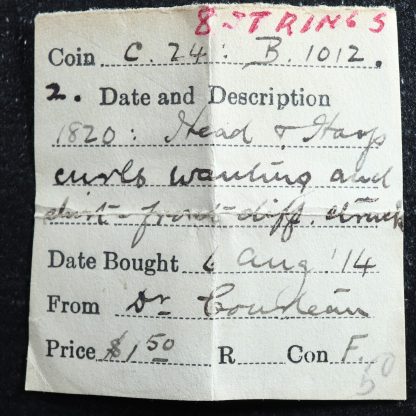 8 STRINGS
Coin C. 24: B. 1012.
2. Date and Description
1820: Head & Harp
curls wanting and
front diff. struck
Date Bought 6 Aug '14
From Dr.
Price $1,50 R Con F.
50